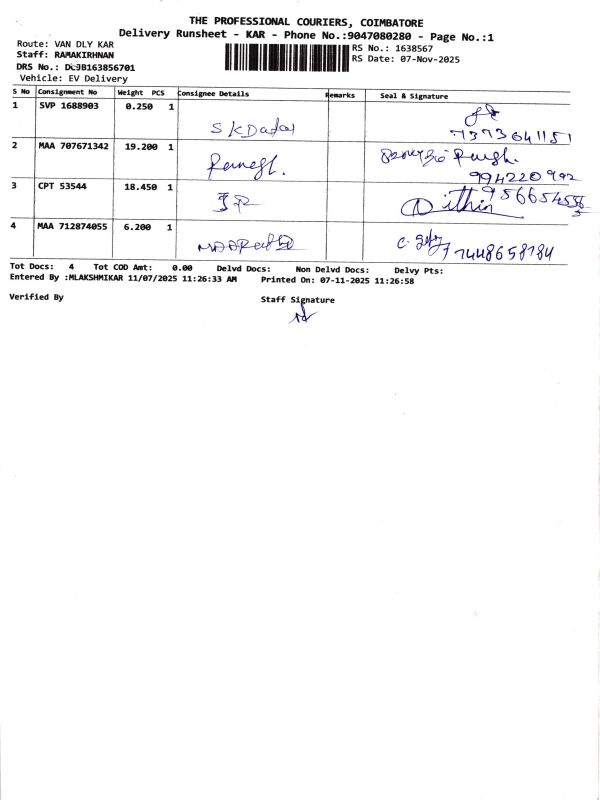 THE PROFESSIONAL COURIERS, COIMBATORE
Delivery Runsheet - KAR - Phone No.:9047080280 - Page No.:1
Route: VAN DLY KAR
Staff: RAMAKIRHNAN
DRS No.: DL9B163856701
Vehicle: EV Delivery
RS No.: 1638567
RS Date: 07-Nov-2025
S No Consignment No Weight PCS Consignee Details Remarks Seal & Signature
1 SVP 1688903 0.250 1
7373641151
2 MAA 707671342 19.200 1
994220992
3 CPT 53544 18.450 1 Dithin
4 MAA 712874055 6.200 1
7448658784
Tot Docs: 4 Tot COD Amt: 0.00 Delvd Docs: Non Delvd Docs: Delvy Pts:
Entered By :MLAKSHMIKAR 11/07/2025 11:26:33 AM Printed On: 07-11-2025 11:26:58
Verified By Staff Signature